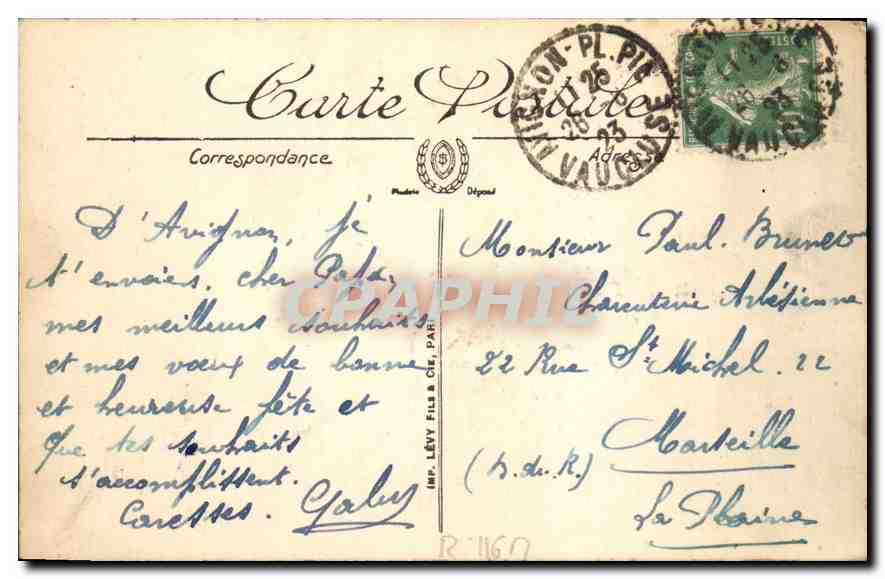 Carte Postale
AVIGNON-PL.PIE
VAUCLUSE
26
23
Correspondance
Adresse
Modèle Déposé
D'Avignon, je
t'envoies, cher Papa,
mes meilleurs souhaits
et mes vœux de bonne
et heureuse fête et
que tes souhaits
s'accomplissent.
Caresses. Gaby
IMP. LÉVY FILS & CIE, PARIS
Monsieur Paul. Brunet
Charcuterie Arlésienne
22 Rue St. Michel. 22
Marseille
(B. du. R.)
La Plaine
CPAPHIL